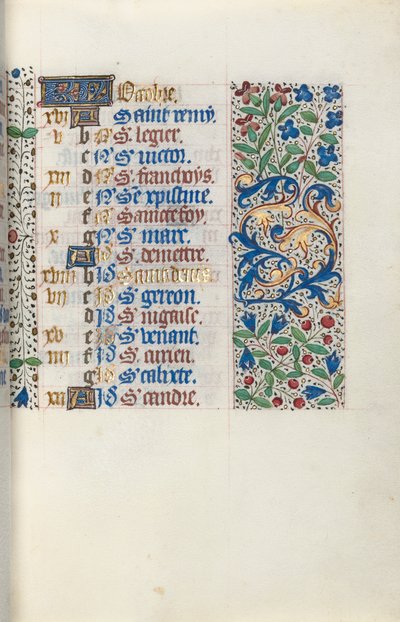 KL Octobre.
xvi A Saint remy.
v b N S. legier.
c N S. victor.
xiii d N S. francoys.
ii e N Se xpistine.
f N Saincte foy.
x g N S. marc.
A Id S. demettre.
xviii b Id Saint denis
vii c Id S. gereon.
d Id S. nigaise.
xv e Id S. venant.
iiii f Id S. aurien.
g Id S. calixte.
xii A Id S. candre.